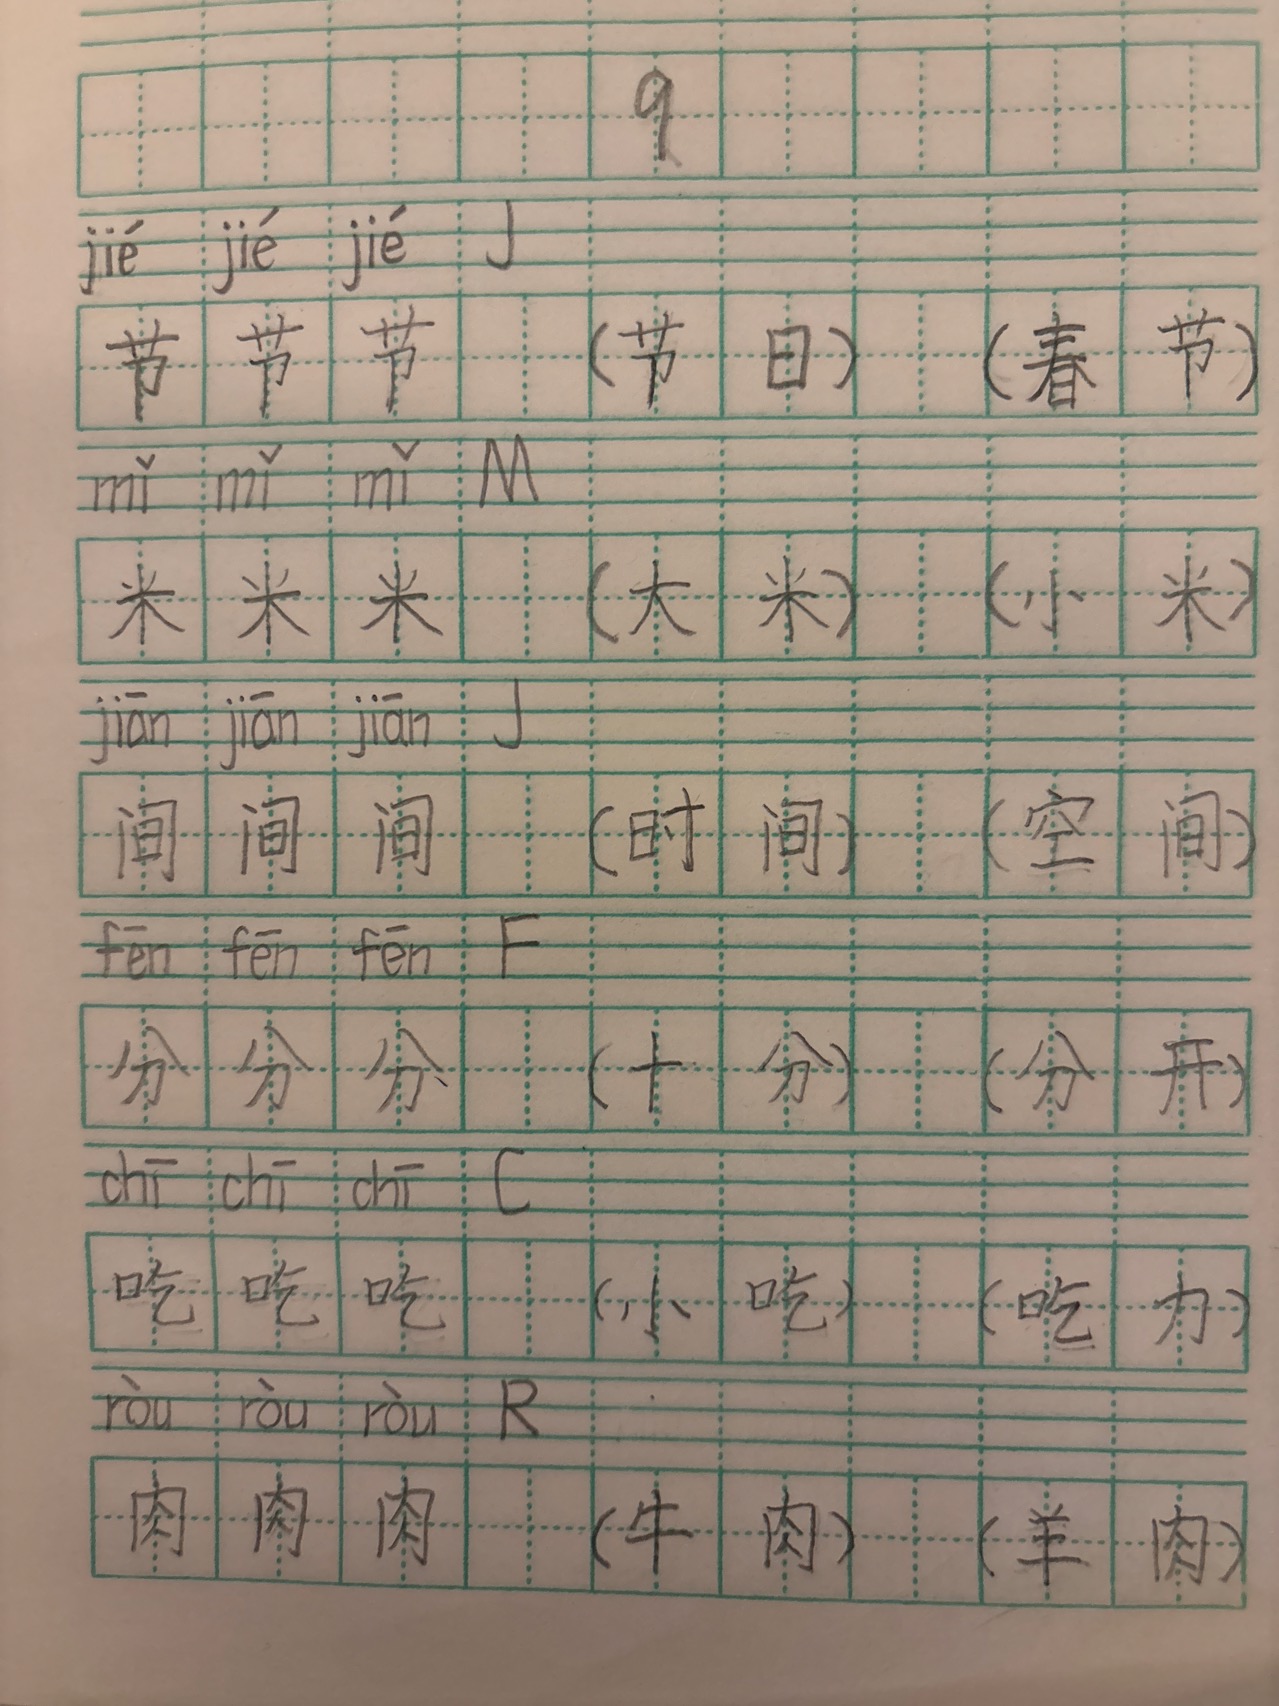 9
jié jié jié J
节 节 节 (节 日) (春 节)
mǐ mǐ mǐ M
米 米 米 (大 米) (小 米)
jiān jiān jiān J
间 间 间 (时 间) (空 间)
fēn fēn fēn F
分 分 分 (十 分) (分 开)
chī chī chī C
吃 吃 吃 (小 吃) (吃 力)
ròu ròu ròu R
肉 肉 肉 (牛 肉) (羊 肉)